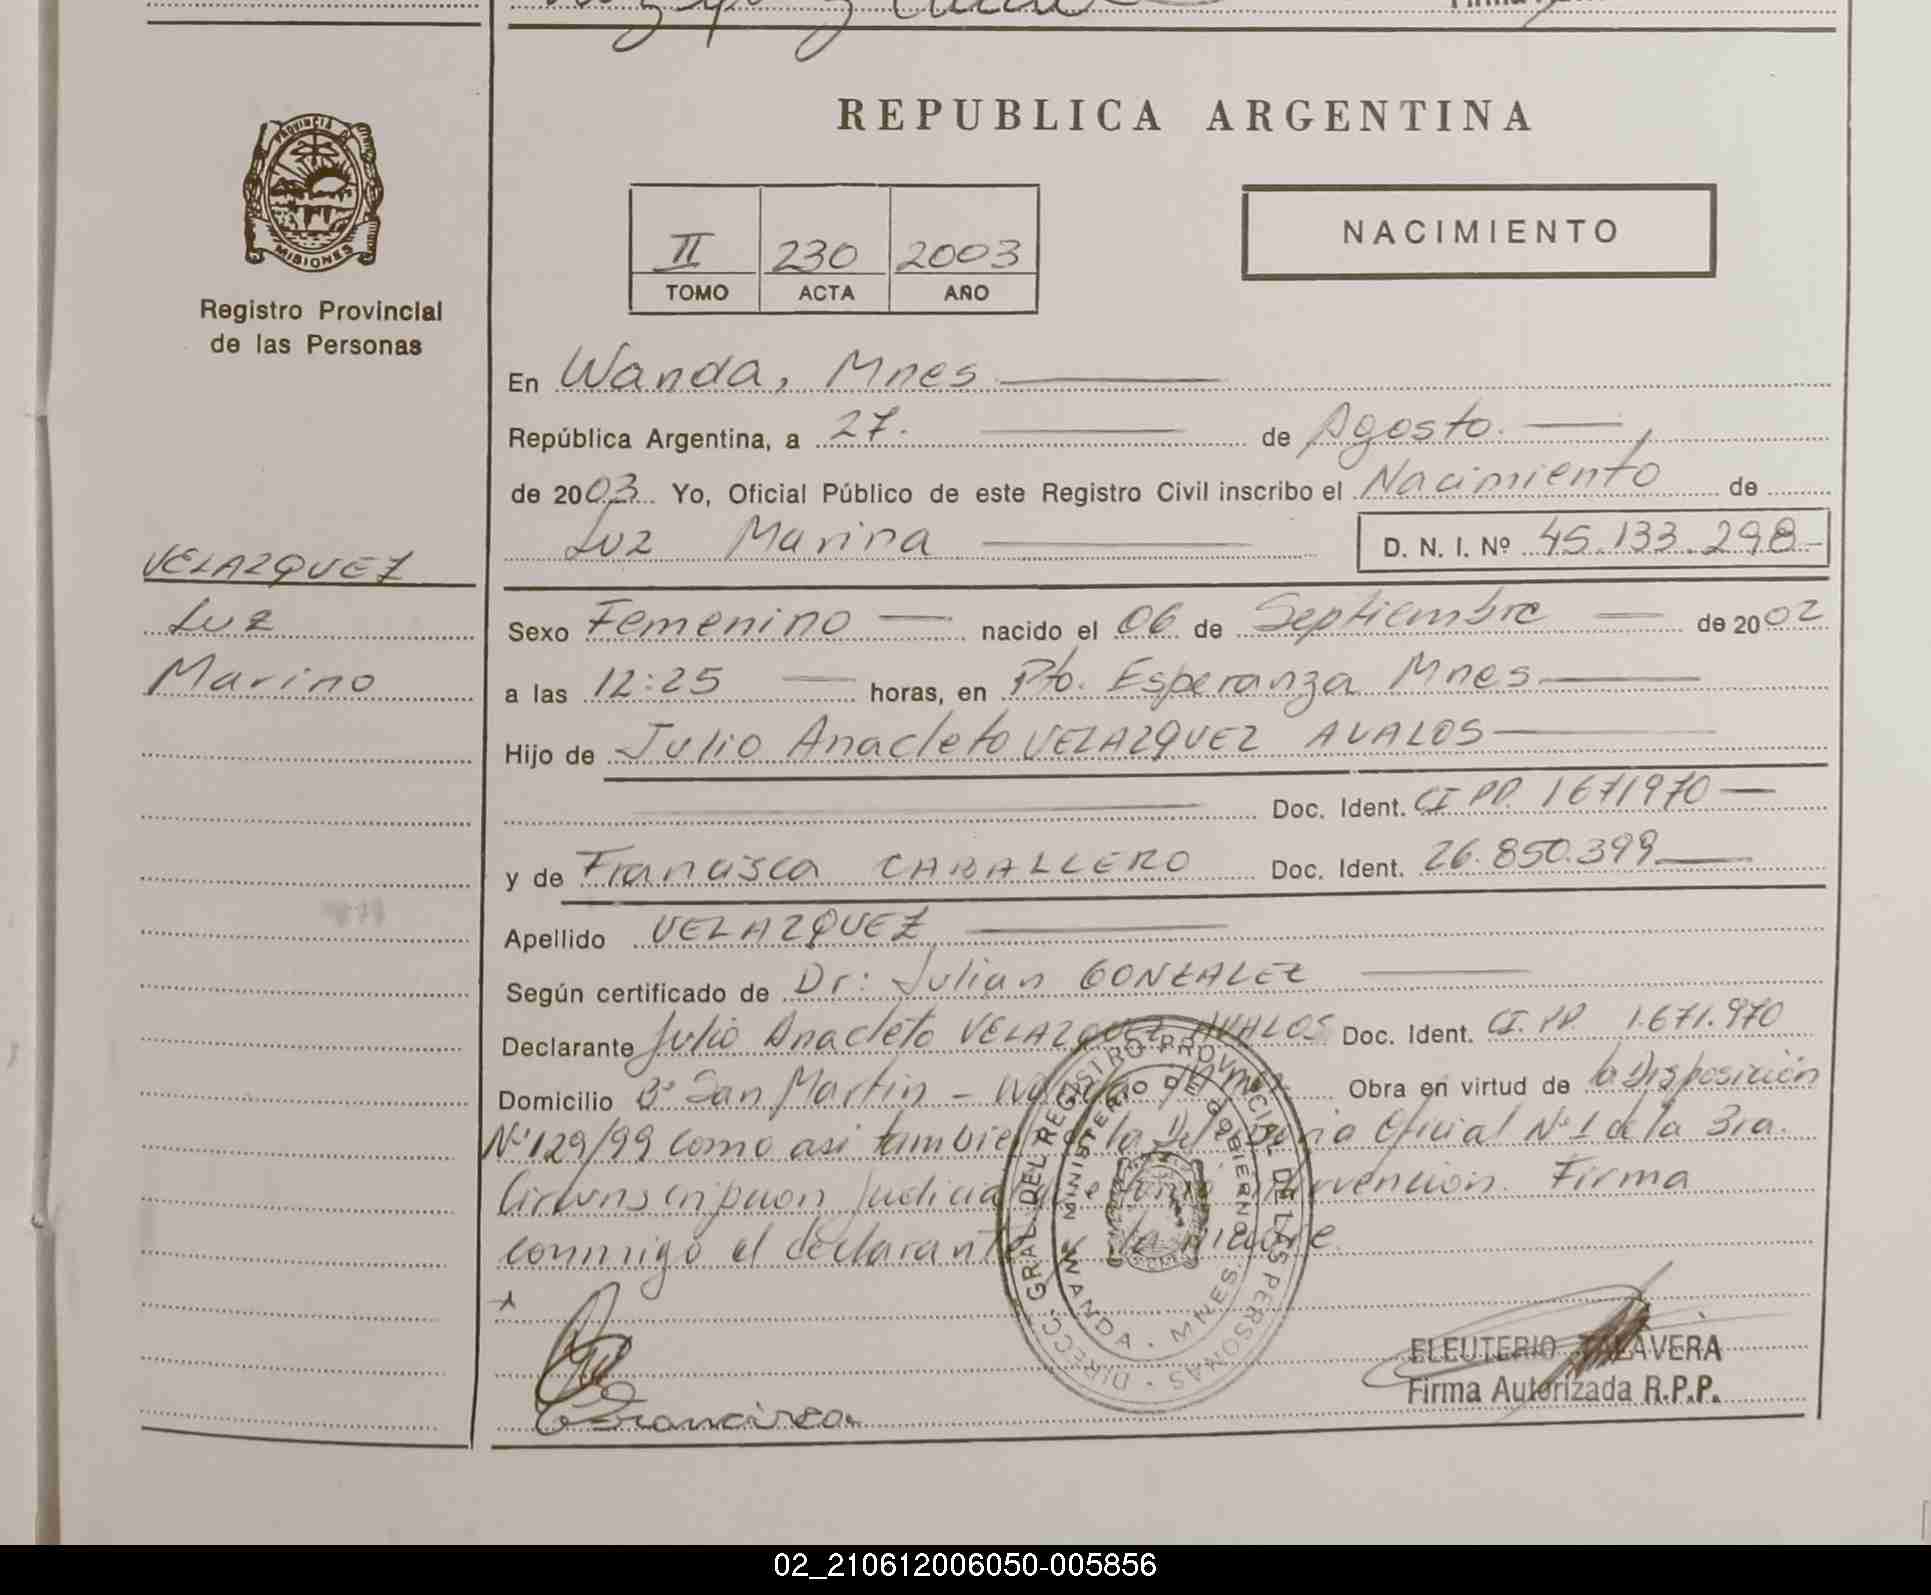 REPUBLICA ARGENTINA
PROVINCIA DE
MISIONES
Registro Provincial
de las Personas
II 230 2003
TOMO ACTA AÑO
NACIMIENTO
En Wanda, Mnes
República Argentina, a 27. de Agosto.
de 2003 Yo, Oficial Público de este Registro Civil inscribo el Nacimiento de
Luz Marina D. N. I. Nº 45.133.298
VELAZQUEZ
Luz
Marina
Sexo Femenino nacido el 06 de Septiembre de 2002
a las 12:25 horas, en Pto. Esperanza Mnes
Hijo de Julio Anacleto VELAZQUEZ AVALOS
Doc. Ident. CI PP. 1671970
y de Francisca CABALLERO Doc. Ident. 26.850.399
Apellido VELAZQUEZ
Según certificado de Dr: Julian GONZALEZ
Declarante Julio Anacleto VELAZQUEZ AVALOS Doc. Ident. CI. PP. 1.671.970
Domicilio Bº San Martin - Obra en virtud de la Disposición
Nº 129/99 como asi tambien la Defensoria Oficial Nº 1 de la 3ra.
Circunscripcion Judicial que intervención. Firma
conmigo el declarante y la madre.
DIRECC. GRAL. DEL REGISTRO PROVINCIAL DE LAS PERSONAS
MINISTERIO DE GOBIERNO
WANDA - MNES.
Francisca
ELEUTERIO TALAVERA
Firma Autorizada R.P.P.
02_210612006050-005856